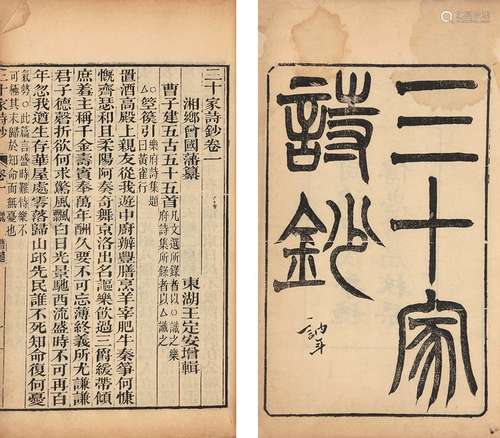 三十家
詩鈔
三十家詩鈔卷一
湘鄉曾國藩纂 東湖王定安增輯
曹子建五古五十五首 凡文選所錄者以○識之樂
府詩集所錄者以△識之
○△箜篌引 樂府詩集題
曰黃雀行
置酒高殿上親友從我遊中廚辦豐膳烹羊宰肥牛秦箏何慷
慨齊瑟和且柔陽阿奏奇舞京洛出名謳樂飲過三爵緩帶傾
庶羞主稱千金壽賓奉萬年酬久要不可忘薄終義所尤謙謙
君子德磬折欲何求驚風飄白日光景馳西流盛時不可再百
年忽我遒生存華屋處零落歸山邱先民誰不死知命復何憂
氣勢○此篇言盛時難恃樂不
可極其末歸於知命而無憂也
三十家詩鈔 卷一